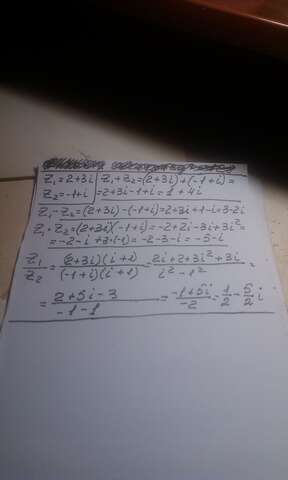 Z₁=2+3i | Z₁+Z₂=(2+3i)+(-1+i)=
Z₂=-1+i | =2+3i-1+i=1+4i
Z₁-Z₂=(2+3i)-(-1+i)=2+3i+1-i=3+2i
Z₁·Z₂=(2+3i)(-1+i)=-2+2i-3i+3i²=
=-2-i+3·(-1)=-2-3-i=-5-i
Z₁/Z₂=(2+3i)(i+1)/(-1+i)(i+1)=2i+2+3i²+3i/i²-1²=
=2+5i-3/-1-1=-1+5i/-2=1/2-5/2i